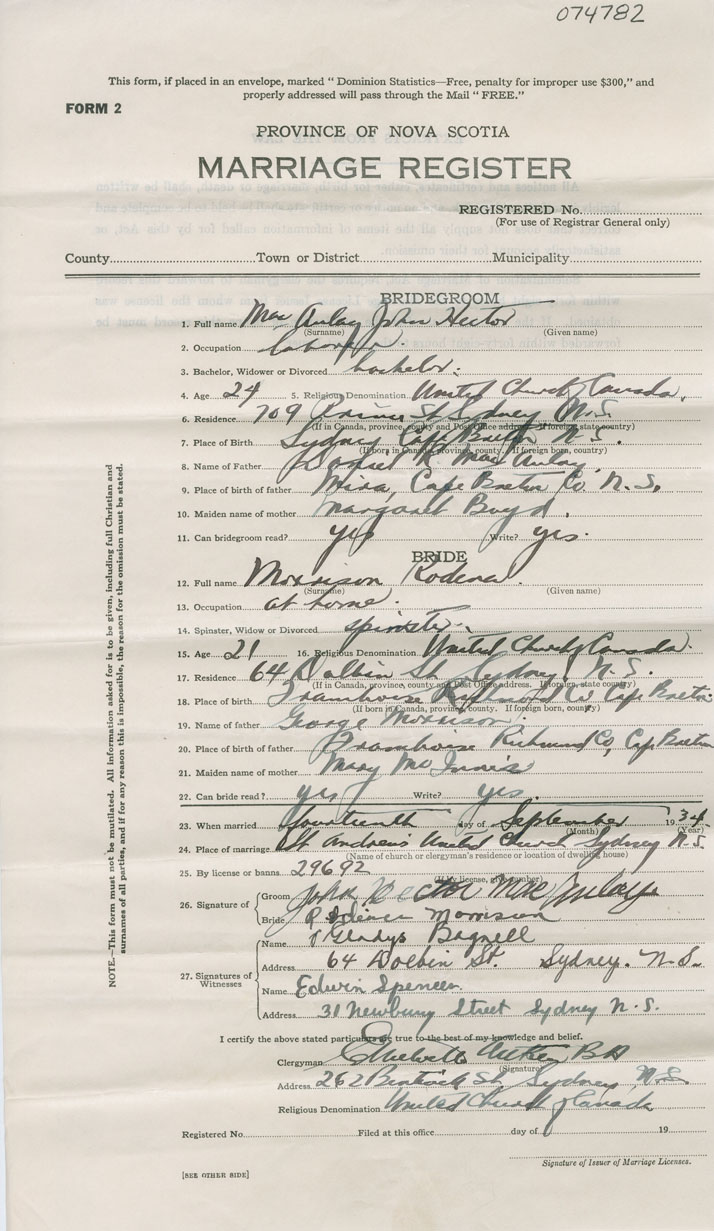 074782
This form, if placed in an envelope, marked " Dominion Statistics—Free, penalty for improper use $300," and
properly addressed will pass through the Mail " FREE."
FORM 2
PROVINCE OF NOVA SCOTIA
MARRIAGE REGISTER
REGISTERED No.
(For use of Registrar General only)
County Town or District Municipality
BRIDEGROOM
1. Full name Mac Aulay John Hector
(Surname) (Given name)
2. Occupation laborer.
3. Bachelor, Widower or Divorced bachelor.
4. Age 24 5. Religious Denomination United Church of Canada.
6. Residence 709 St Sydney N.S.
(If in Canada, province, county and Post Office address. If foreign, state country)
7. Place of Birth Sydney Cape Breton N.S.
(If born in Canada, province, county. If foreign born, country)
8. Name of Father Daniel R. MacAulay
9. Place of birth of father Mira, Cape Breton Co. N.S.
10. Maiden name of mother Margaret Boyd.
11. Can bridegroom read? yes Write? yes.
BRIDE
12. Full name Morrison Rodena.
(Surname) (Given name)
13. Occupation at home.
14. Spinster, Widow or Divorced spinster.
15. Age 21 16. Religious Denomination United Church of Canada.
17. Residence 64 Dolbin St. Sydney, N.S.
(If in Canada, province, county and Post Office address. If foreign, state country)
18. Place of birth Framboise Richmond Co. Cape Breton
(If born in Canada, province, county. If foreign born, country)
19. Name of father George Morrison.
20. Place of birth of father Framboise Richmond Co, Cape Breton
21. Maiden name of mother Mary McInnis
22. Can bride read? yes Write? yes.
23. When married fourteenth day of September 1934.
(Month) (Year)
24. Place of marriage St Andrew's United Church Sydney N.S.
(Name of church or clergyman's residence or location of dwelling house)
25. By license or banns 29692
(If by license, give number)
26. Signature of Groom John Hector MacAulay
Bride Rodena Morrison
27. Signatures of Witnesses Name Gladys Bagnell
Address 64 Dolbin St. Sydney. N.S.
Name Edwin Spencer
Address 31 Newbury Street Sydney N.S.
I certify the above stated particulars are true to the best of my knowledge and belief.
Clergyman Aitken BA
(Signature)
Address 262 Bentinck St Sydney N.S.
Religious Denomination United Church of Canada
Registered No. Filed at this office day of 19
Signature of Issuer of Marriage Licenses.
[SEE OTHER SIDE]
NOTE.—This form must not be mutilated. All information asked for is to be given, including full Christian and
surnames of all parties, and if for any reason this is impossible, the reason for the omission must be stated.